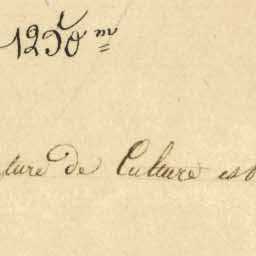 1250 m
ture de Culture est